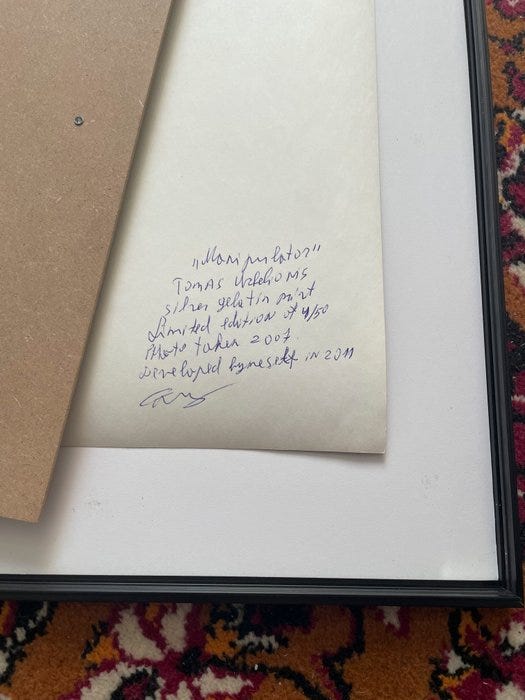 „Manipulator"
Tomas
silver gelatin print
Limited edition of 4/50
Photo taken 2007.
Developed by meself in 2011